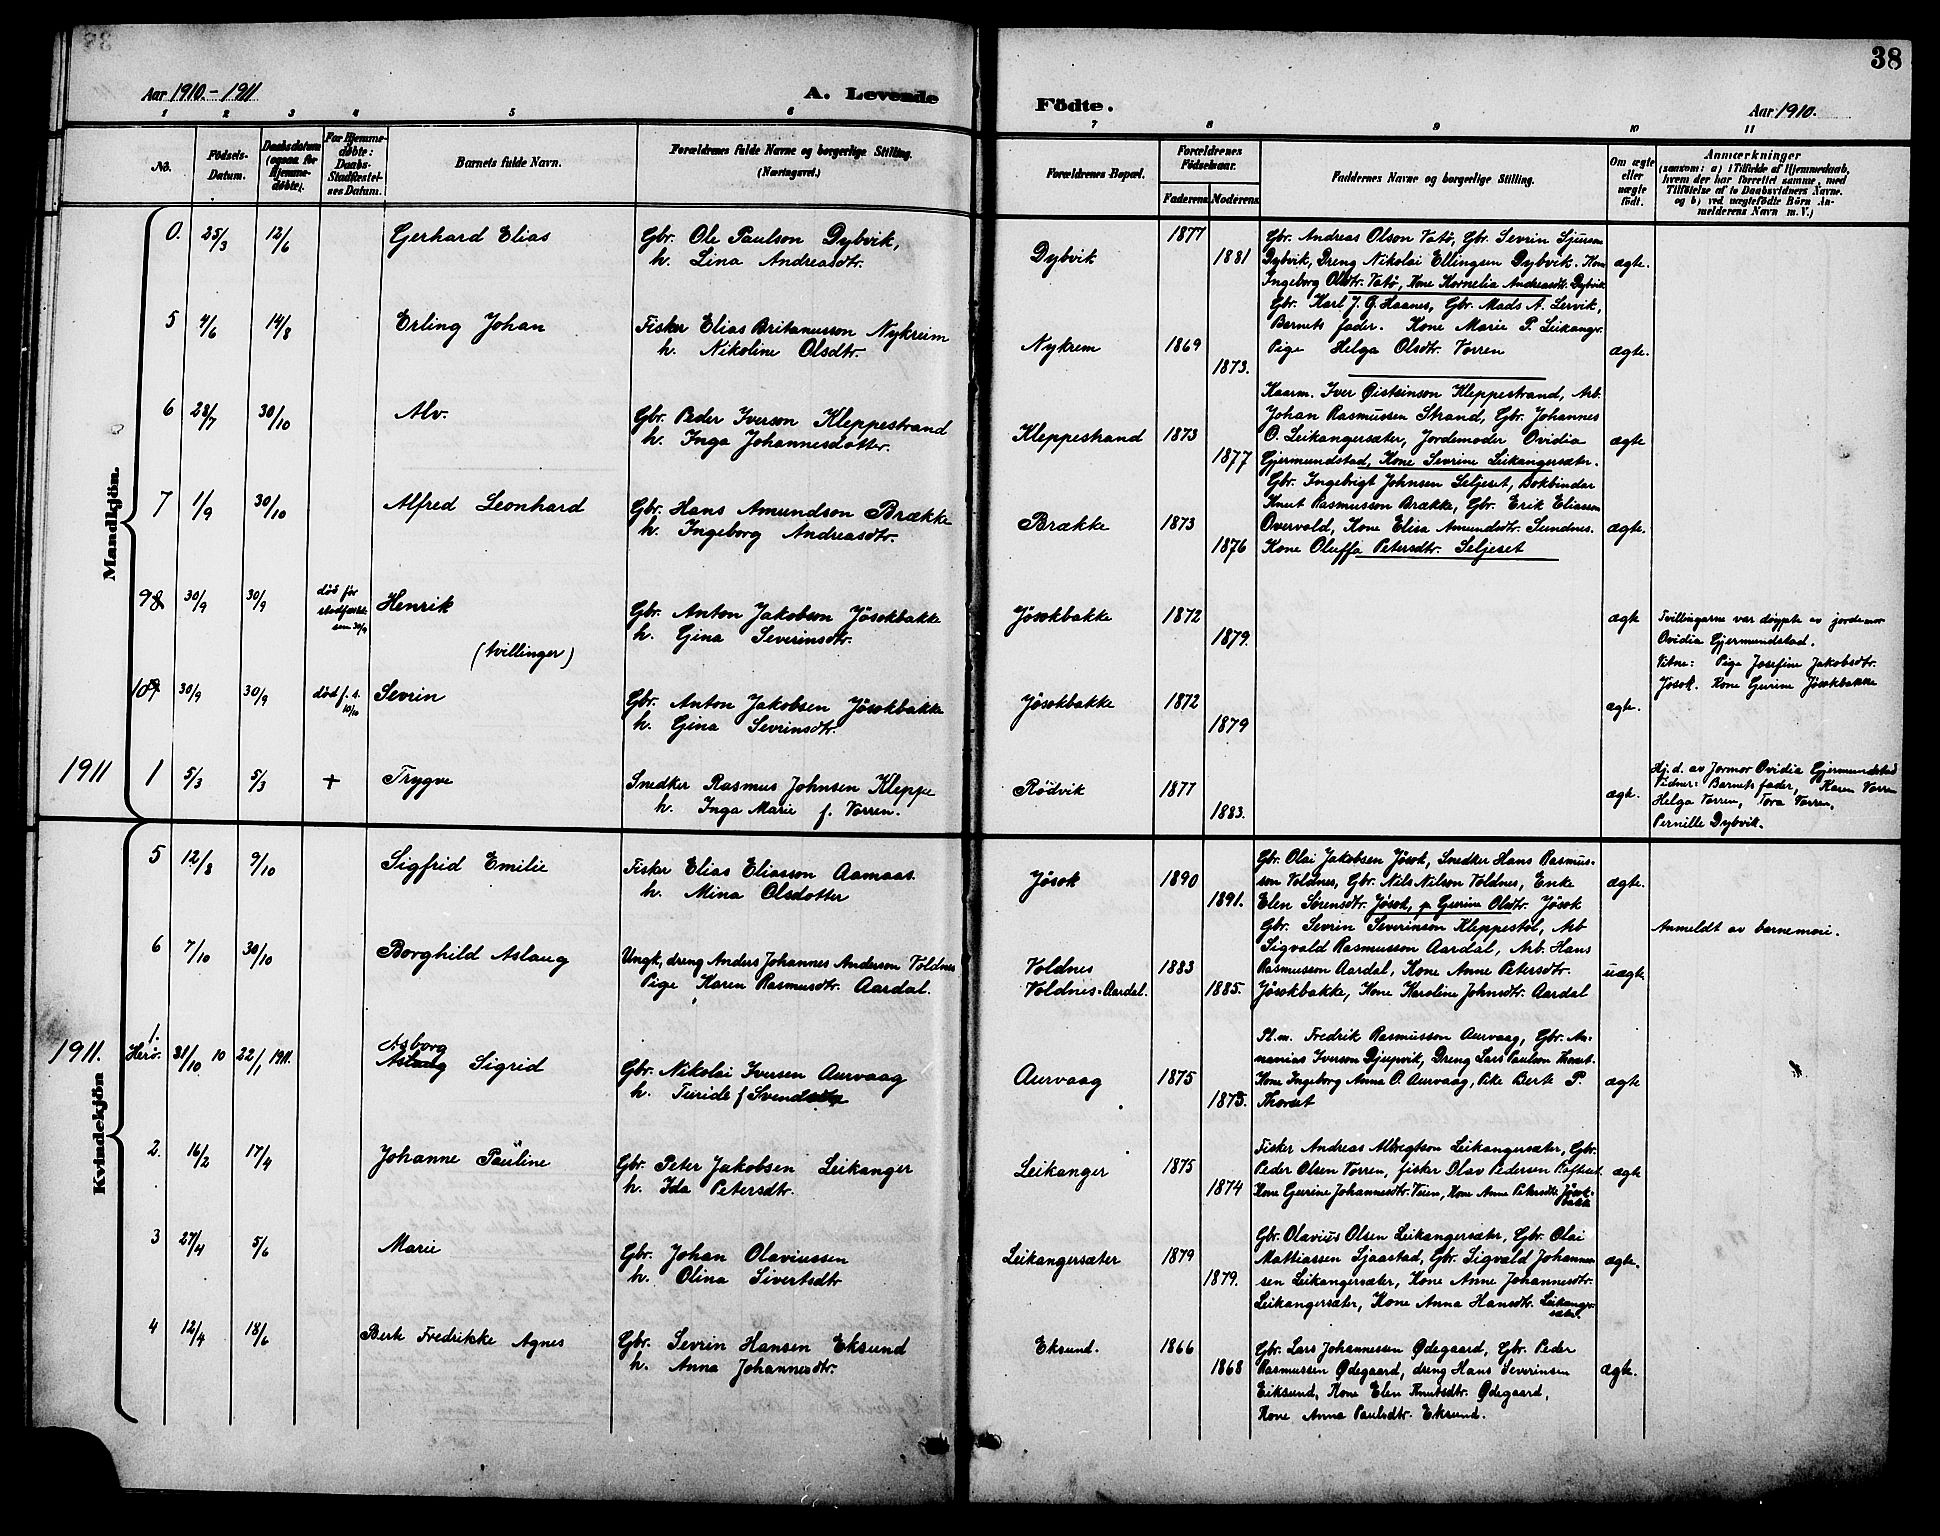 38
Aar 1910.-1911
A. Levende
Födte.
Aar 1910.
1 2 3 4 5 6 7 8 9 10 11
No.
Födsels-Datum.
Daabsdatum (ogsaa for Hjemmedøbte).
For Hjemmedøbte: Daabs-Stadfæstelses Datum.
Barnets fulde Navn.
Forældrenes fulde Navne og borgerlige Stilling. (Næringsvei.)
Forældrenes Bopæl.
Forældrenes Födselsaar.
Faderens Moderens
Faddernes Navne og borgerlige Stilling.
Om ægte eller uægte födt.
Anmærkninger
(saasom: a) i Tilfælde af Hjemmedaab, hvem der har forrettet samme, med Tilföielse af to Daabsvidners Navne, og b) ved uægtefödte Börn Anmelderens Navn m. V.)
Mandkjön.
0. 25/3 12/6 Gerhard Elias
Gbr. Ole Paulson Dybvik,
h. Lina Andreasdtr.
Dybvik 1877 1881
Gbr. Andreas Olson Vatø, Gbr. Sevrin Sjurson
Dybvik, Dreng Nikolai Ellingsen Dybvik. Kone
Ingeborg Olsdtr. Vatø, Kone Kornelia Andreasdt. Dybvik
ægte.
5 4/6 14/8 Erling Johan
Fisker Elias Britanusson Nykreim
h. Nikoline Olsdtr.
Nykrem 1869 1873.
Gbr. Karl J. G. Haanes, Gbr. Mads A. Lervik,
Barnets fader. Kone Marie P. Leikanger
Pige Helga Olsdtr. Vorren
ægte.
6 28/7 30/10 Alv.
Gbr. Peder Iverson Kleppestrand
h. Inga Johannesdotter.
Kleppestrand 1873 1877
Kaarm. Iver Øisteinson Kleppestrand, Arb.
Johan Rasmussen Strand, Gbr. Johannes
O. Leikangersæter, Jordemoder Ovidia
Gjermundstad, Kone Sevrine Leikangersæter.
ægte
7 1/9 30/10 Alfred Leonhard
Gbr. Hans Amundson Brække
h. Ingeborg Andreasdtr.
Brække 1873 1876
Gbr. Ingebrigt Johnsen Seljeset, Bokbindar
Knut Rasmusson Brække, Gbr. Erik Eliassen
Overvold, Kone Elisa Amundsdtr. Sundnes.
Kone Oluffa Petersdtr. Seljeset
ægte.
98 30/9 30/9 død før stadfæstelsen 30/9 Henrik
(tvillinger)
Gbr. Anton Jakobson Jösokbakke
h. Gina Severinsdtr.
Jösokbakke 1872 1879.
ægte
Tvillingarne var døypte av jordemor
Ovidia Gjermundstad.
Vitne: Pige Josefine Jakobsdtr.
Jøsok. Kone Gurine Jösokbakke
109 30/9 30/9 död f. s. 10/10 Sevrin
Gbr. Anton Jakobsen Jösokbakke
h. Gina Sevrinsdtr.
Jösokbakke 1872 1879
ægte.
1911 1 5/3 5/3 + Trygve
Snedker Rasmus Johnsen Kleppe
h. Inga Marie f. Vorren.
Rödvik 1877 1883.
ægte.
Hj.d. av Jormor Ovidia Gjermundstad
Vidner: Barnets fader, Karen Vorren
Helga Vorren, Tora Vorren,
Pernille Dybvik.
Kvindekjön
5 12/8 9/10 Sigfrid Emilie
Fisker Elias Eliasson Aamaas.
h. Mina Olsdotter
Jösok 1890 1891.
Gbr. Olai Jakobsen Jösok, Snedker Hans Rasmus-
son Voldnes, Gbr. Nils Nilson Voldnes, Enke
Elen Sørensdtr. Jösok, p Gurine Olsdtr. Jösok
ægte.
6 7/10 30/10 Borghild Aslaug
Ungk, dreng Anders Johannes Anderson Voldnes
Pige Karen Rasmusdtr. Aardal.
Voldnes
Voldnes-Aardal. 1883 1885.
Gbr. Sevrin Severinson Kleppestøl, Arb
Sigvald Rasmusson Aardal, Arb. Hans
Rasmusson Aardal, Kone Anne Petersdtr.
Jösokbakke, Kone Karoline Johnsdtr. Aardal
uægte
Anmeldt av barnemori.
1911. 1. Herö. 31/10 10 22/1 1911. Asborg
Aslaug Sigrid
Gbr. Nikolai Iversen Aurvaag
h. Turide f Svendsdtr
Aurvaag 1875 1873.
Pl.m. Fredrik Rasmusson Aurvaag, Gbr. An-
nanias Iverson Djupvik, Dreng Lars Paulson Thorset.
Kone Ingeborg Anna O. Aurvaag, Pike Berte P.
Thorset
ægte
2. 16/2 17/4 Johanne Pauline
Gbr. Peter Jakobsen Leikanger
h. Ida Petersdtr.
Leikanger 1875 1874
Fisker Andreas Albregtson Leikangersæter, Gbr.
Peder Olsen Vorren, fisker Olav Pedersen Rafteset.
Kone Gurine Johannesdtr. Veien, Kone Anne Petersdtr. Jösokbakke
ægte
3 27/4 5/6 Marie
Gbr. Johan Olaviussen
h. Olina Sivertsdtr
Leikangersæter 1879 1879.
Gbr. Olavius Olsen Leikangersæter, Gbr. Olai
Mattiassen Sjaastad, Gbr. Sigvald Johannes-
sen Leikangersæter, Kone Anne Johannesdtr.
Leikangersæter, Kone Anna Hansdtr. Leikangersæter.
ægte.
4 12/4 18/6 Berte Fredrikke Agnes
Gbr. Sevrin Hansen Eksund
h. Anna Johannesdtr.
Eksund. 1866 1868
Gbr. Lars Johannessen Ødegaard, Gbr. Peder
Rasmussen Ødegaard, dreng Hans Severinsen
Eiksund, Kone Elen Knutsdtr. Ødegaard,
Kone Anna Paulsdtr. Eksund.
ægte.